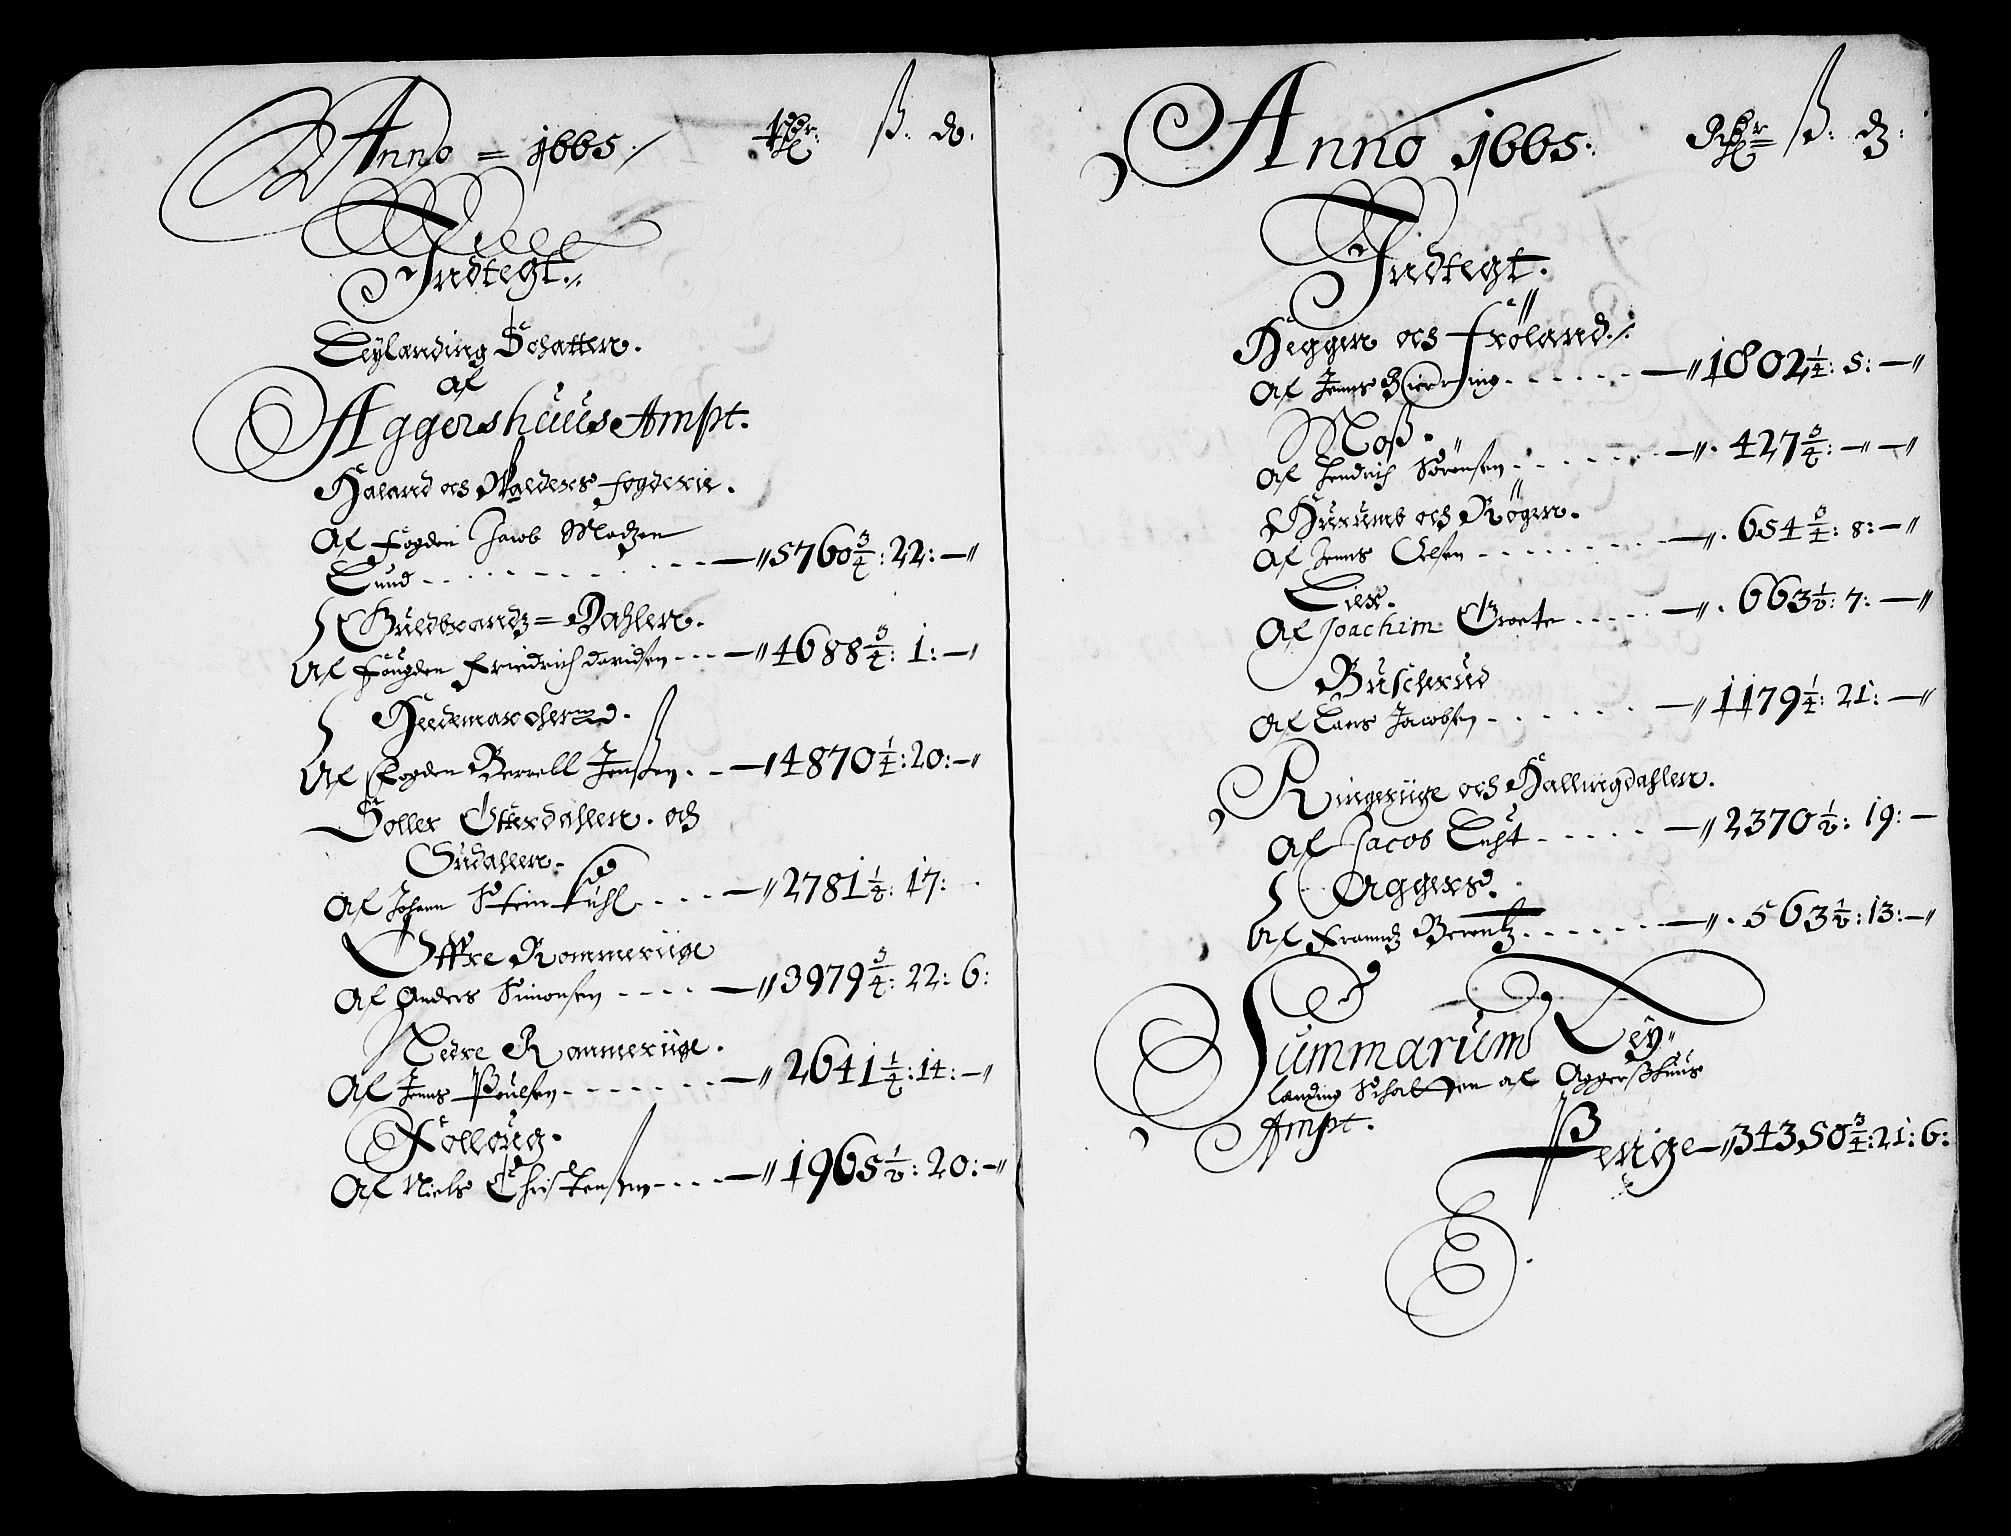 Anno = 1665. Rdr. ß. d.
Indtegt.
Leylanding Schatten.
Af
Aggershuus Ampt.
Haland och Walders fogderie.
Af Fogden Jacob Madzen
Lund - - - 5760 3/4: 22: —
Guldbrandz = Dahlen.
Af Fougden Friedrich Davidsen - - - 4688 3/4: 1: —
Heedemarcherne.
Af Fogden Berrell Jenßen - - 4870 1/4: 20: —
Soller Østerdahlen. och
Oudahlen.
Af Johann Steinkuhl - - - - 2781 1/2: 17:
Øffre Rommeriige
Af Anders Simonsen - - - - 3979 3/4: 22: 6:
Nedre Rommeriige.
Af Jenns Poulsen - - - - 2641 1/4: 14: —
Folloug.
Af Niels Christensen - - - - 1965 1/2: 20: —
Anno 1665: Rdr ß: d:
Indtegt.
Heggen och Fröland.
Af Jenns Bierring - - - - 1802 1/4: 5: —
Moß.
Af Hendrich Sörensen - - - - 427 3/4: — —
Hurumb och Rögen.
Af Jenns Olsen - - - - 654 3/4: 8: —
Lier.
Af Joachim Groete - - - - 663 1/2: 7: —
Buscherud
Af Lars Jacobsen - - - - 1179 1/4: 21: —
Ringeriige och Hallingdahlen.
Af Jacob Luht - - - - 2370 1/2: 19: —
Aggers.
Af Franndz Berentz - - - - 563 1/2: 13: —
Summarum Ley
landing Schatten af Aggerßhuus
Ampt.
Penge — 34350 3/4: 21: 6: